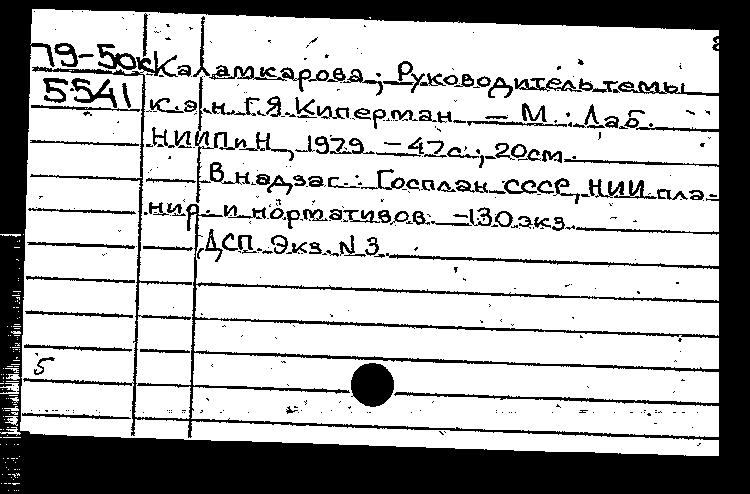 79-50к Каламкарова; Руководитель темы
5541 к.э.н. Г.Я. Киперман. – М.: Лаб.
НИИПиН, 1979. – 47с.; 20см.
В надзаг.: Госплан СССР, НИИ пла-
нир. и нормативов. – 130 экз.
ДСП. Экз. N 3.
5